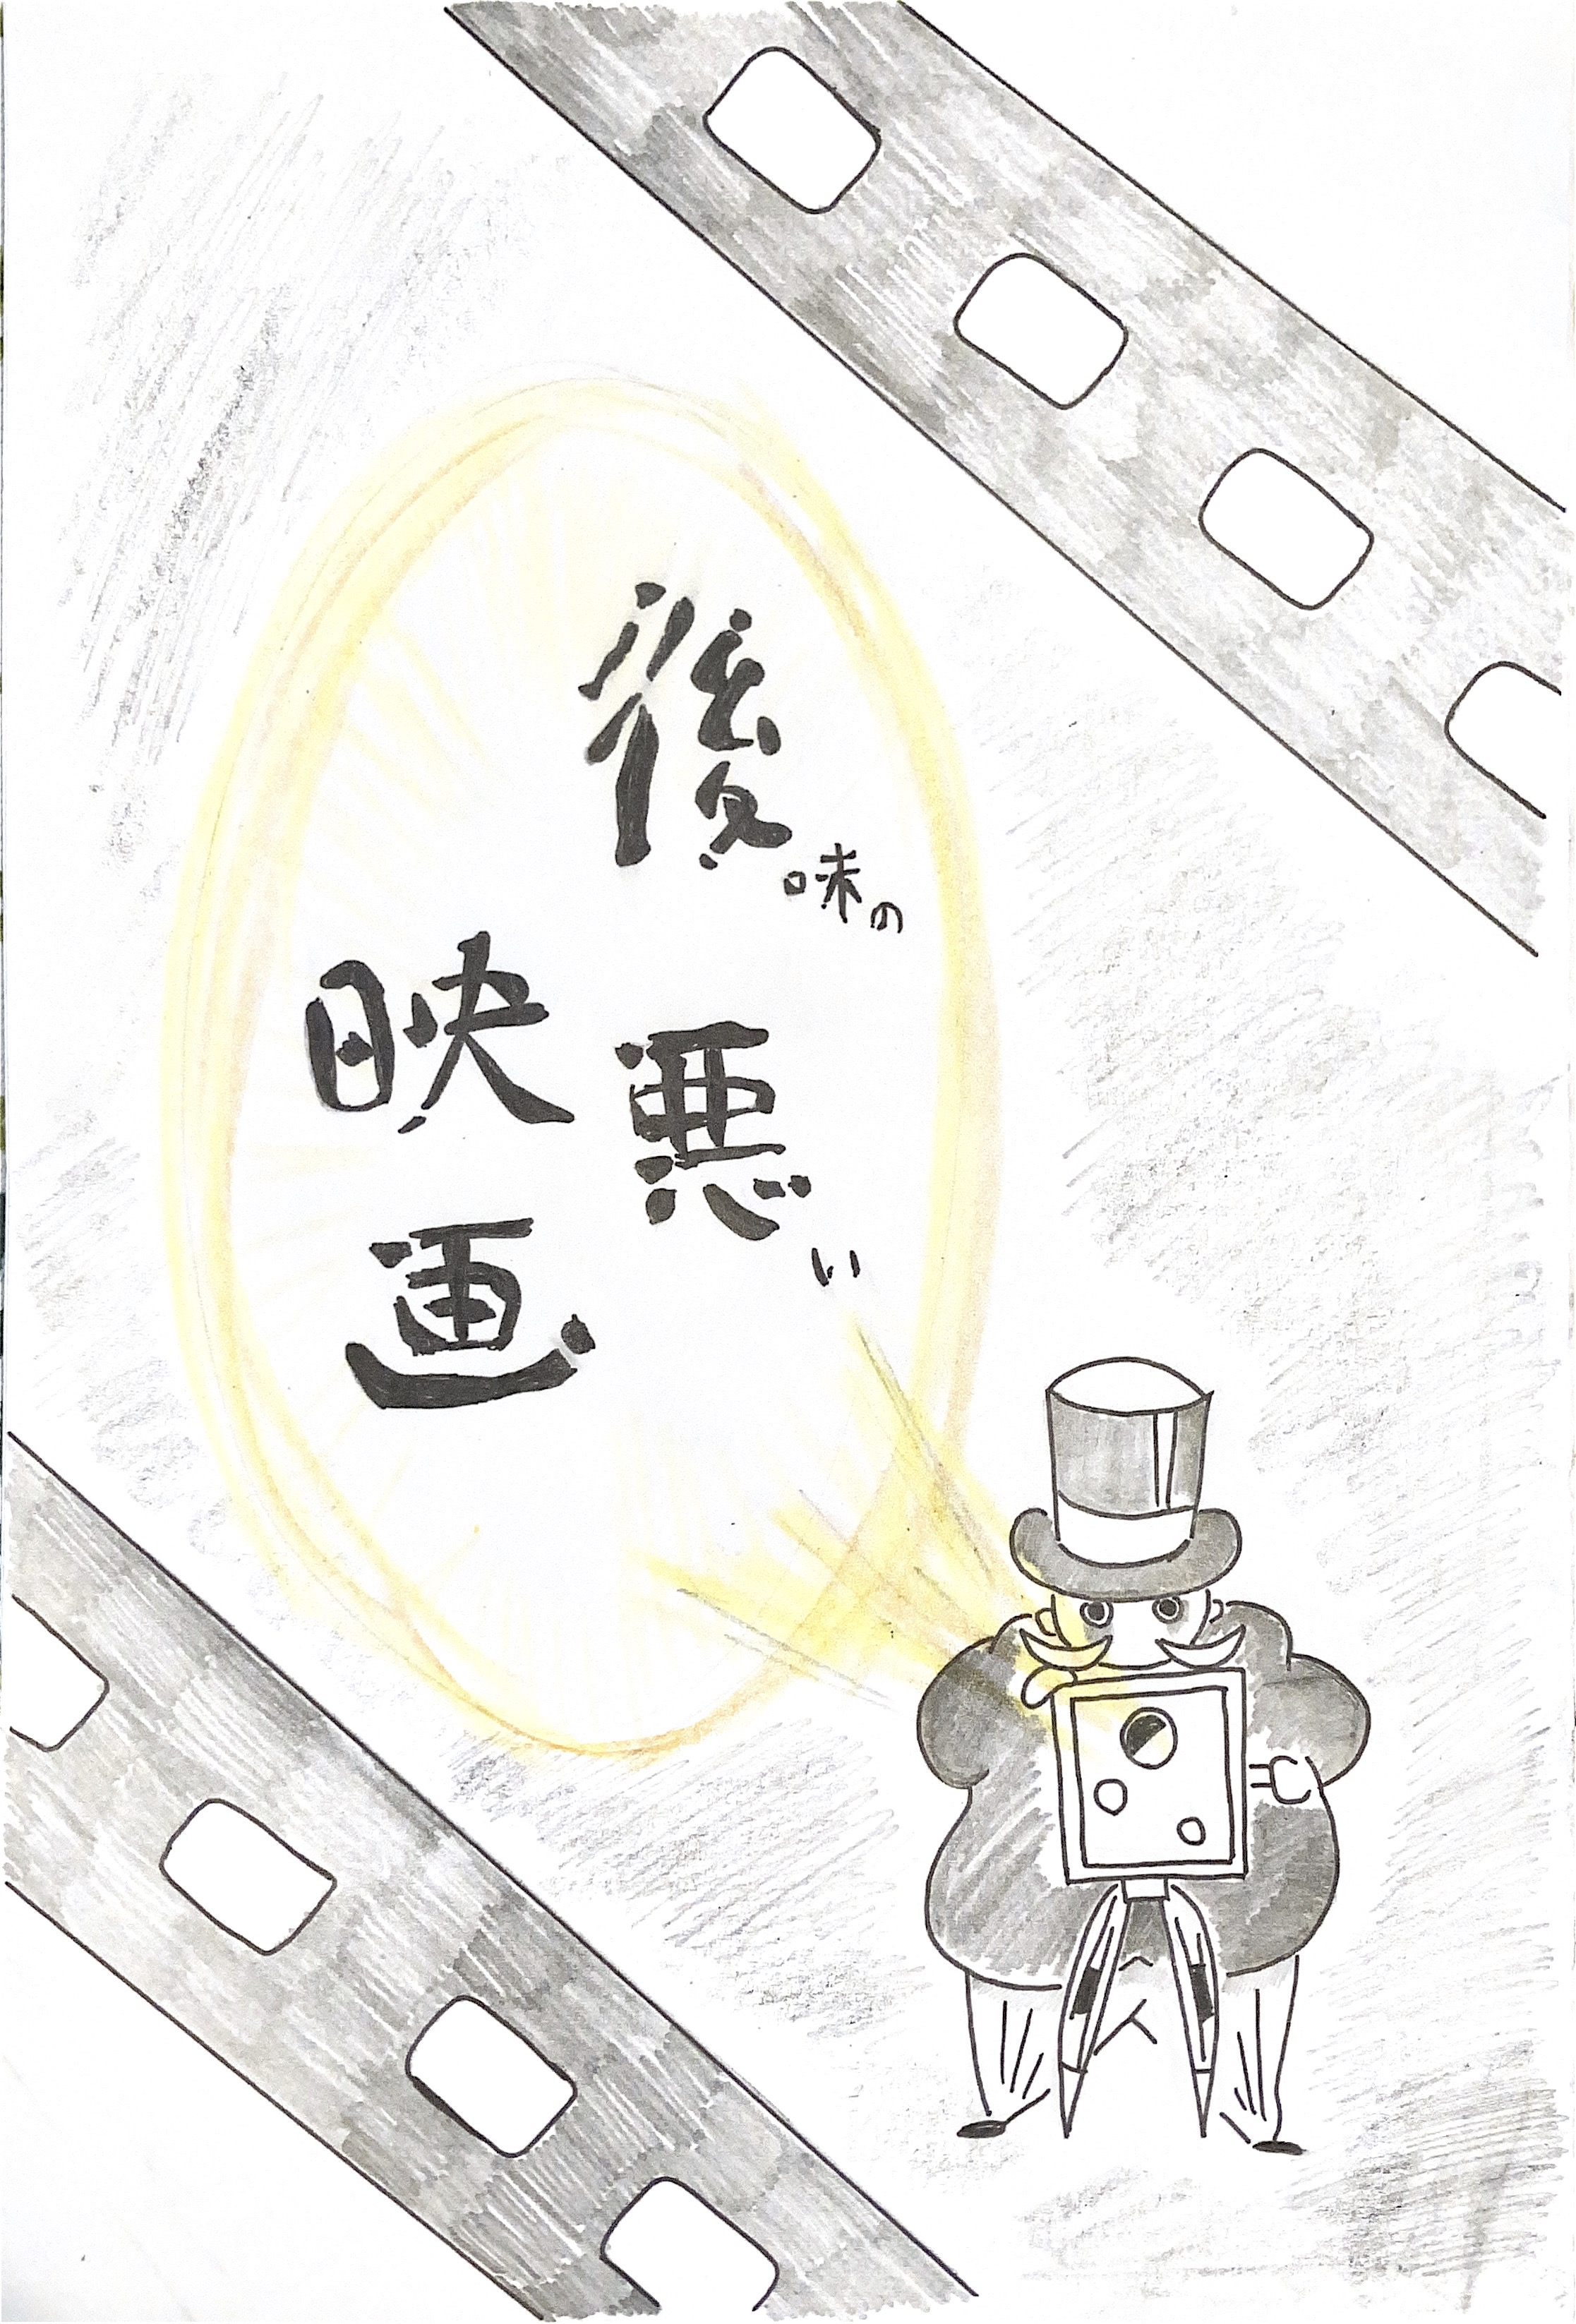 後味の
悪い
映画